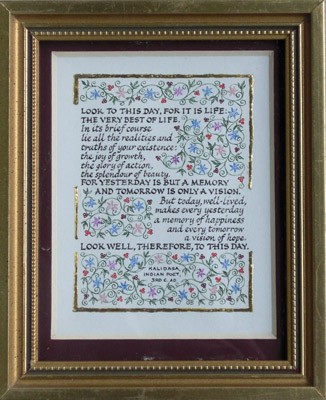 LOOK TO THIS DAY, FOR IT IS LIFE:
THE VERY BEST OF LIFE.
In its brief course
lie all the realities and
truths of your existence:
the joy of growth,
the glory of action,
the splendour of beauty.
FOR YESTERDAY IS BUT A MEMORY
AND TOMORROW IS ONLY A VISION.
But today, well-lived,
makes every yesterday
a memory of happiness
and every tomorrow
a vision of hope.
LOOK WELL, THEREFORE, TO THIS DAY.
KALIDASA,
INDIAN POET,